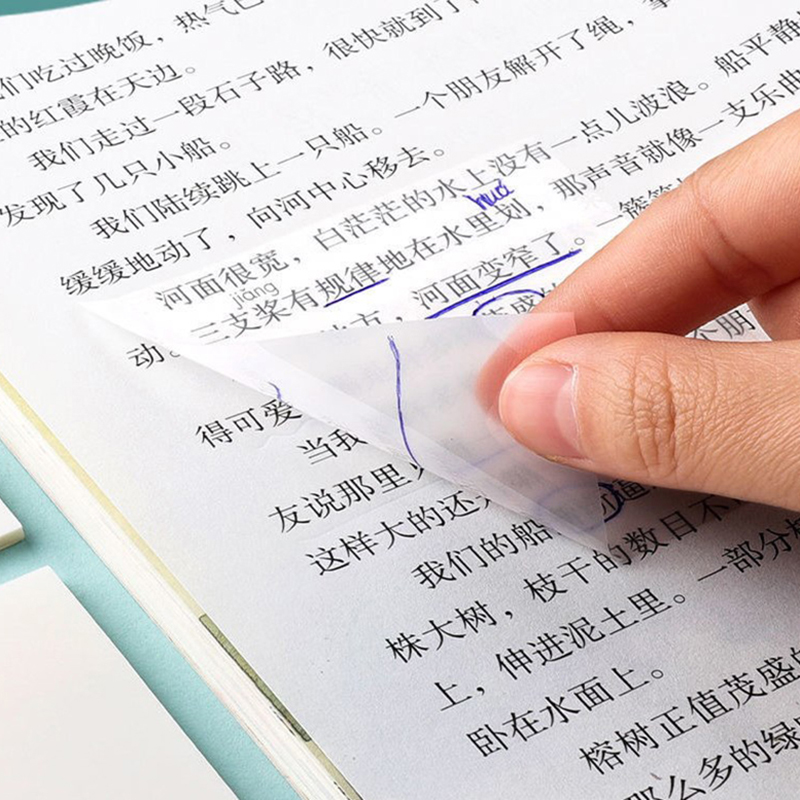 热气
们吃过晚饭，
的红霞在天边。
我们走过一段石子路，很快就到了
发现了几只小船。
我们陆续跳上一只船。一个朋友解开了绳，
缓缓地动了，向河中心移去。
河面很宽，白茫茫的水上没有一点儿波浪。船平静
huá
jiāng
三支桨有规律地在水里划，那声音就像一支乐曲
动。 方，河面变窄了。一簇簇
盛的
个朋
得可爱
当我
友说那里
这样大的还
我们的船 逼
株大树，枝干的数目不
上，伸进泥土里。一部分
卧在水面上。
榕树正值茂盛的
那么多的绿